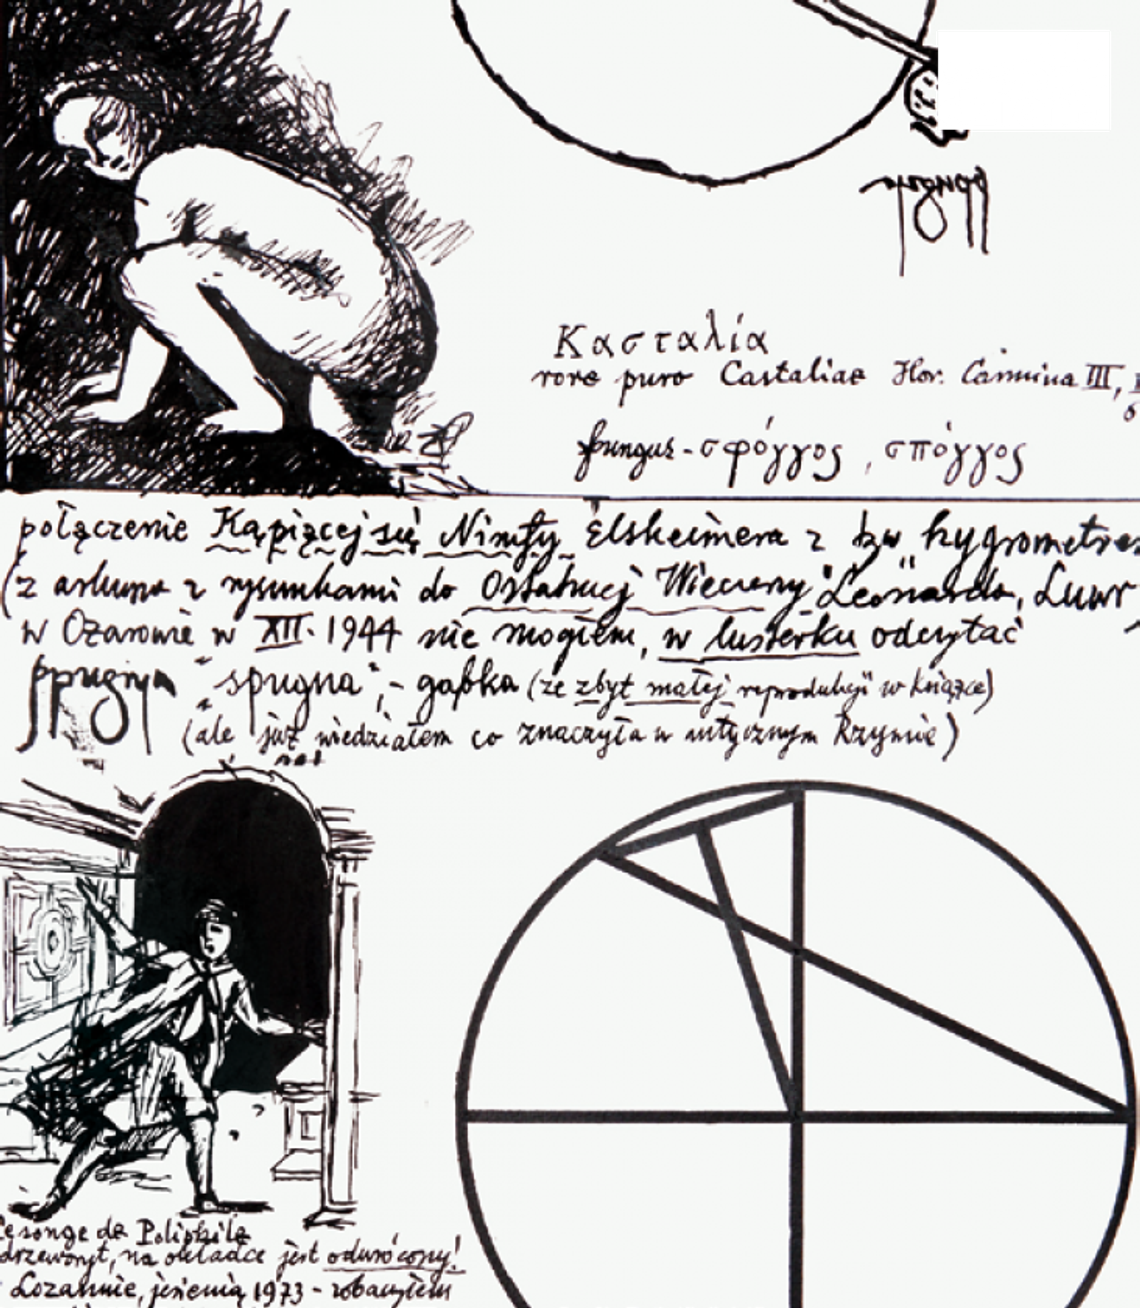 Κασταλία
rore puro Castaliae Hor. Carmina III,
fungus - σφόγγος, σπόγγος
połączenie Kąpiącej się Nimfy Elsheimera z tzw hygrometrem
(z arkusza z rysunkami do Ostatniej Wieczerzy" Leonarda, Luwr
w Ożarowie w XII. 1944 nie mogłem, w lusterku odczytać
"spugna", - gąbka (ze zbyt małej reprodukcji w książce)
(ale już wiedziałem co znaczyła w antycznym Rzymie)
Le songe de Poliphile
drzeworyt, na okładce jest odwrócony!
Lozannie, jesienią 1973 - zobaczyłem